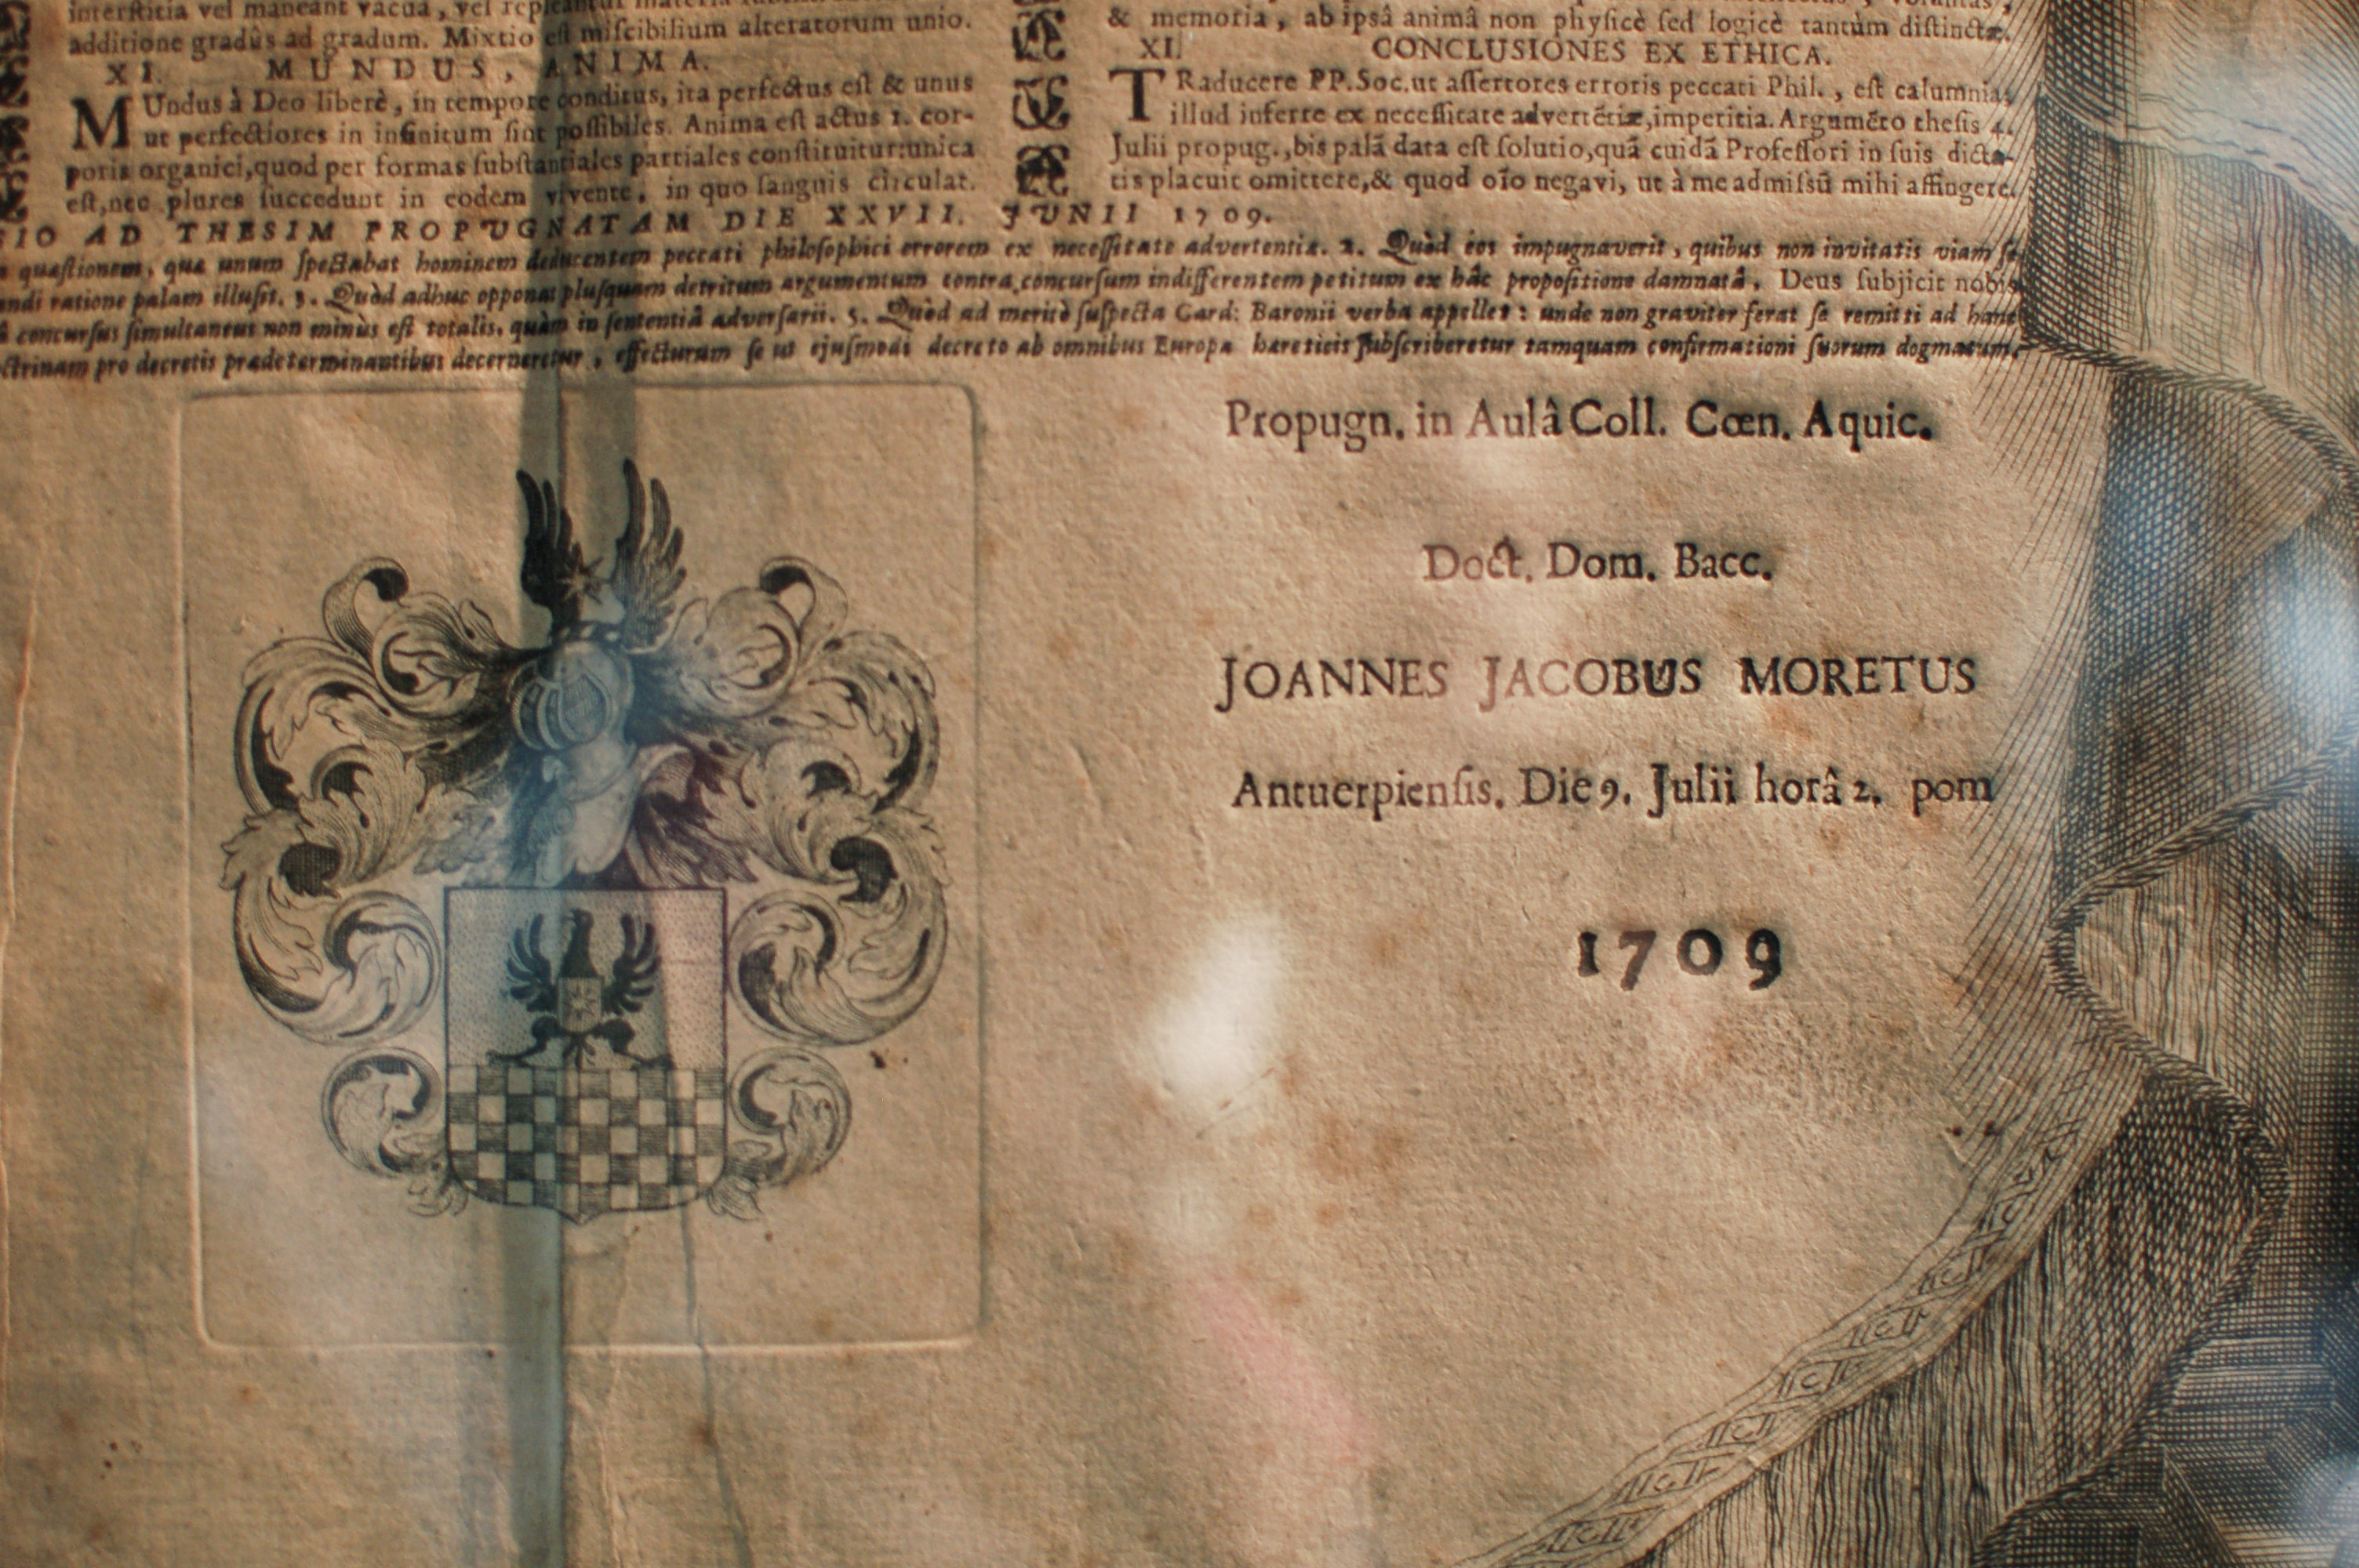 interstitia vel maneant vacua, vel repleantur materia
additione gradûs ad gradum. Mixtio est miscibilium alteratorum unio.
XI. MUNDUS, ANIMA.
MUndus à Deo liberè, in tempore conditus, ita perfectus est & unus
ut perfectiores in infinitum sint possibiles. Anima est actus 1. cor-
poris organici, quod per formas substantiales partiales constituitur: unica
est, nec plures succedunt in eodem vivente, in quo sanguis circulat.
& memoria, ab ipsâ animâ non physicè sed logicè tantùm distinctæ.
XI. CONCLUSIONES EX ETHICA.
TRaducere PP. Soc. ut assertores erroris peccati Phil., est calumnia,
illud inferre ex necessitate advertẽtiæ, imperitia. Argumẽto thesis 4.
Julii propug., bis palã data est solutio, quã cuidã Professori in suis dicta-
tis placuit omittere, & quod oĩo negavi, ut à me admissũ mihi affingere.
IO AD THESIM PROPUGNATAM DIE XXVII. JUNII 1709.
quæstionem, quæ unum spectabat hominem deducentem peccati philosophici errorem ex necessitate advertentiæ. 2. Quòd eos impugnaverit, quibus non invitatis viam
ndi ratione palam illusit. 3. Quòd adhuc opponat plusquam detritum argumentum contra concursum indifferentem petitum ex hâc propositione damnatâ, Deus subjicit nobis
concursus simultaneus non minùs est totalis, quàm in sententiâ adversarii. 5. Quòd ad meritò suspecta Card: Baronii verba appellet: unde non graviter ferat se remitti ad hanc
ctrinam pro decretis prædeterminantibus decerneretur, effecturum se ut ejusmodi decreto ab omnibus Europæ hæreticis subscriberetur tamquam confirmationi suorum dogmatum.
Propugn. in Aulâ Coll. Cœn. Aquic.
Doct. Dom. Bacc.
JOANNES JACOBUS MORETUS
Antuerpiensis. Die 9. Julii horâ 2. pom
1709